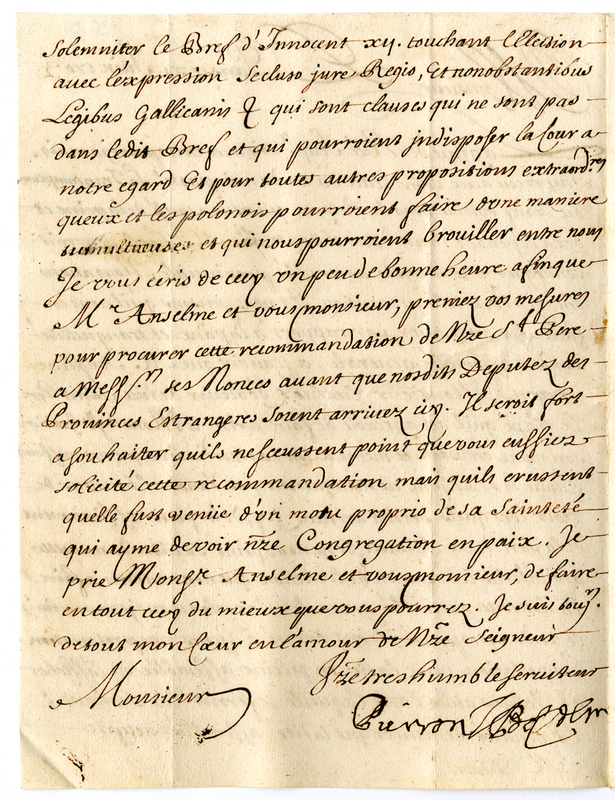 Solemniter le Bref d'Innocent xij. touchant l'Election
avec l'expression Secluso jure Regio, Et nonobstantibus
Legibus Gallicanis & qui sont clauses qui ne sont pas
dans ledit Bref et qui pourroient jndisposer la Cour a
notre egard Et pour toutes autres propositions extraord.res
queux et les polonois pourroient faire d'vne maniere
tumultueuses et qui nous pourroient brouiller entre nous
Je vous écris de cecy vn peu de bonne heure afin que
Mr. Anselme et vous monsieur, preniez vos mesures
pour procurer cette recommandation de Nre St. Pere
a Messrs. ses Nonces auant que nosdits Deputez des
Provinces Estrangeres soient arrivez icy. Il seroit fort
a souhaiter quils ne sceussent point que vous eussiez
solicité cette recommandation mais quils crussent
quelle fust venüe d'vn motu proprio de sa Sainteté
qui ayme de voir nre Congregation en paix. Je
prie Monsr. Anselme et vous monsieur, de faire
en tout cecy du mieux que vous pourrez. Je suis toujrs.
de tout mon Cœur en l'amour de Nre Seigneur
Vre tres humble serviteur
Monsieur
Pierron